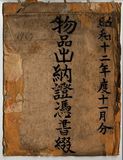 昭和十二年度十一月分
物品出納證憑書綴